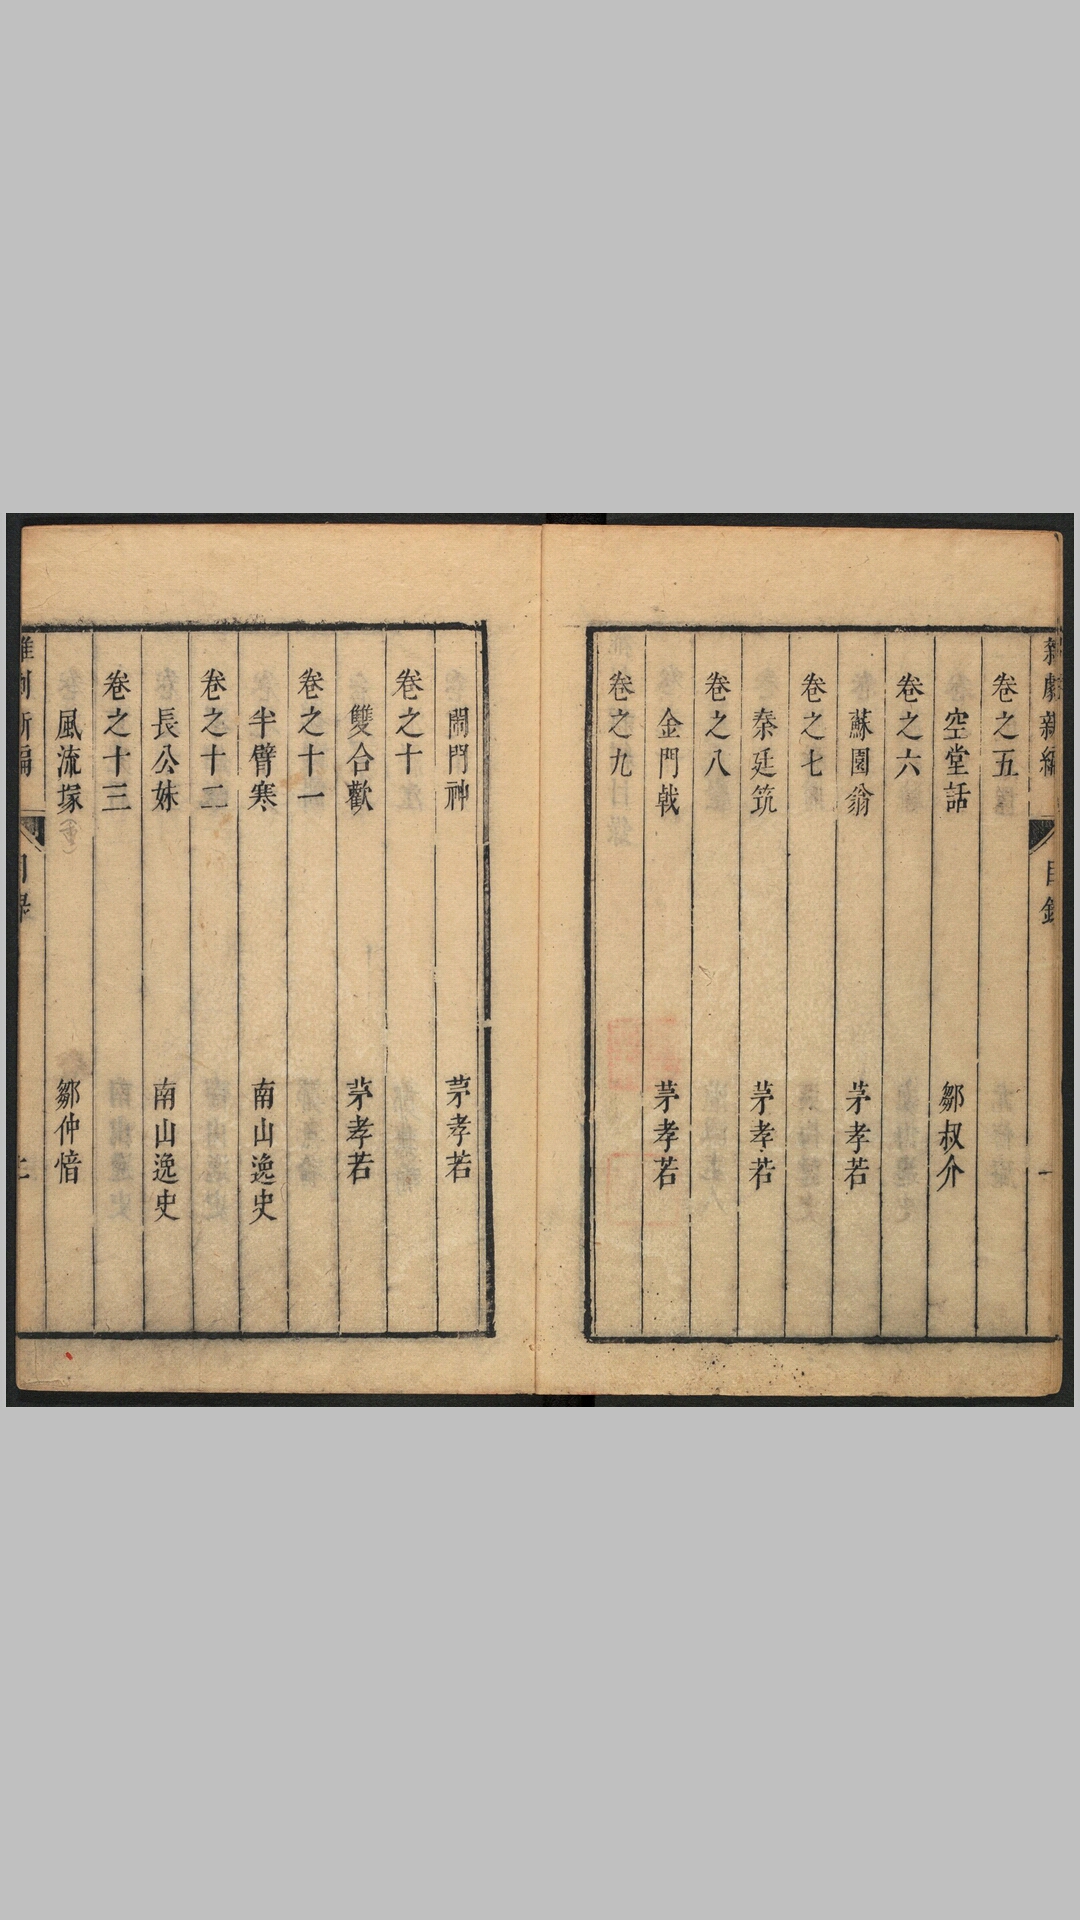 雜劇新編
目錄
一
卷之五
空堂話
鄒叔介
卷之六
蘇園翁
茅孝若
卷之七
秦廷筑
茅孝若
卷之八
金門戟
茅孝若
卷之九
鬧門神
茅孝若
卷之十
雙合歡
茅孝若
卷之十一
半臂寒
南山逸史
卷之十二
長公妹
南山逸史
卷之十三
風流塚
鄒仲愔